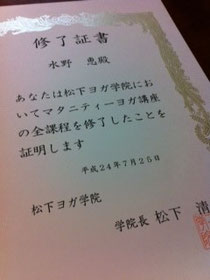 修了証書
水野　恵殿
あなたは松下ヨガ学院にお
いてマタニティーヨガ講座
の全課程を修了したことを
証明します
平成24年7月25日
松下ヨガ学院
学院長 松下　清